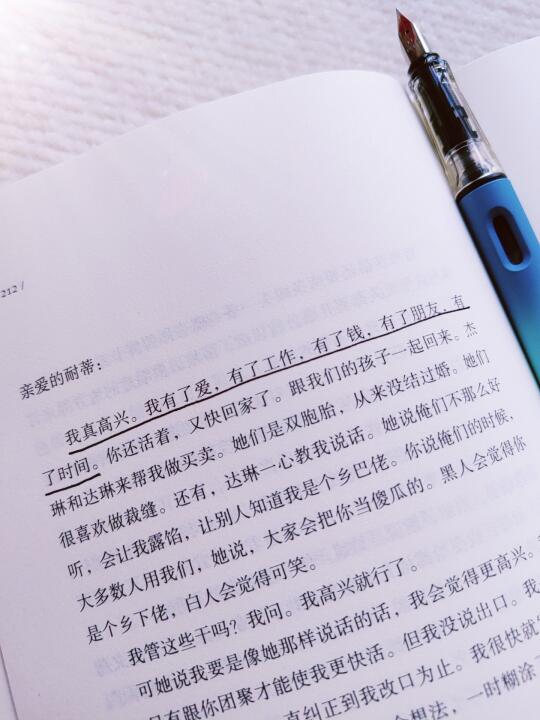 212 /
亲爱的耐蒂：
我真高兴。我有了爱，有了工作，有了钱，有了朋友，有
了时间。你还活着，又快回家了。跟我们的孩子一起回来。杰
琳和达琳来帮我做买卖。她们是双胞胎，从来没结过婚。她们
很喜欢做裁缝。还有，达琳一心教我说话。她说俺们不那么好
听，会让我露馅，让别人知道我是个乡巴佬。你说俺们的时候，
大多数人用我们，她说，大家会把你当傻瓜的。黑人会觉得你
是个乡下佬，白人会觉得可笑。
我管这些干吗？我问。我高兴就行了。
可她说我要是像她那样说话的话，我会觉得更高兴。
只有跟你团聚才能使我更快活。但我没说出口。我
直纠正到我改口为止。我很快就
想法，一时糊涂